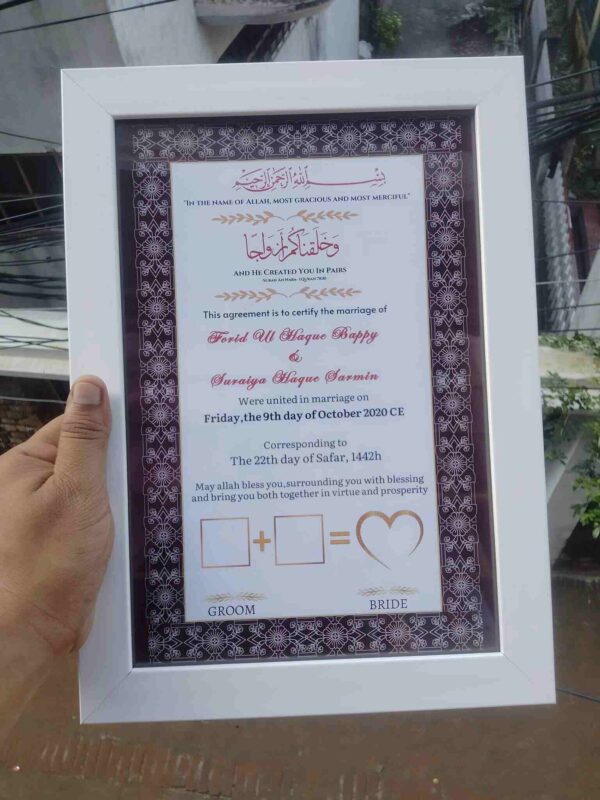 بِسْمِ اللهِ الرَّحْمٰنِ الرَّحِيْمِ
"In the name of Allah, most gracious and most merciful"
وَخَلَقْنَاكُمْ أَزْوَاجًا
And He Created You In Pairs
This agreement is to certify the marriage of
Forid Ul Haque Bappy
&
Suraiya Haque Sarmin
Were united in marriage on
Friday,the 9th day of October 2020 CE
Corresponding to
The 22th day of Safar, 1442h
May allah bless you,surrounding you with blessing
and bring you both together in virtue and prosperity
+ =
GROOM BRIDE